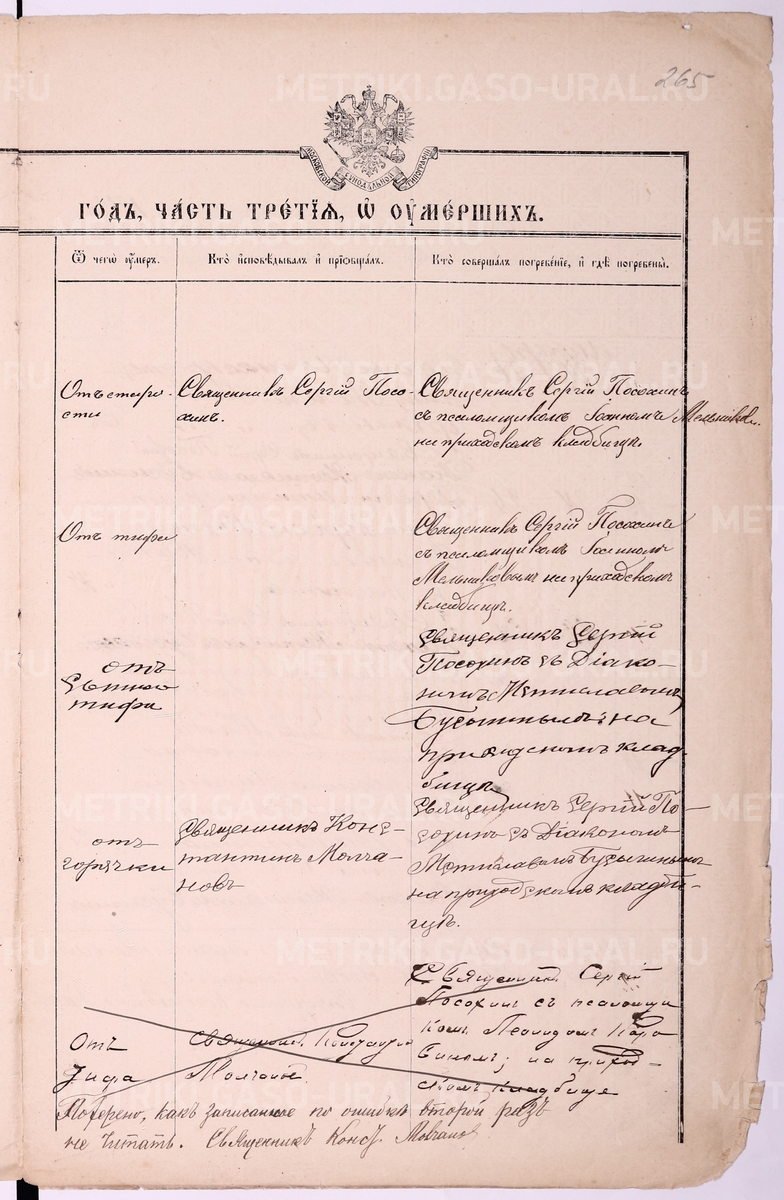 265
МОСКОВСКОЙ СѴНОДАЛЬНОЙ ТИПОГРАФІИ
ГО́ДЪ, ЧА́СТЬ ТРЕ́ТІЯ, Ѽ ОУМЕ́РШИХЪ.
Ѿ чегѡ̀ ᲂу҆́меръ.
Кто̀ и҆сповѣ́дывалъ и҆ приѡбща́лъ.
Кто̀ соверша́лъ погребе́ніе, и҆ гдѣ̀ погребены̀.
Отъ старо-
сти
Священникъ Сергій Посо-
хинъ.
Священникъ Сергій Посохинъ
съ псаломщикомъ Іоанномъ Мельников.
на приходскомъ кладбищѣ.
Отъ тифа
Священникъ Сергій Посохинъ
съ псаломщикомъ Іоанномъ
Мельниковымъ на приходскомъ
кладбищѣ.
отъ
тифа
Священникъ Сергій
Посохинъ съ Діако-
номъ
Бусыгинымъ на
приходскомъ клад-
бищѣ
отъ
горячки
Священникъ Конс-
тантинъ Молча-
новъ
Священникъ Сергій По-
сохинъ съ Діакономъ
Мстиславомъ Бусыгинымъ
на приходскомъ кладби-
щѣ.
Отъ
тифа
Священник. Константин
Молчанов.
Священник. Сергій
Посохин съ псаломщи
ком Леонидом
на приход-
ском кладбище
Похерено, какъ записанное по ошибкѣ второй разъ
не читать. Священникъ Конст. Молчанов
METRIKI.GASO-URAL.RU